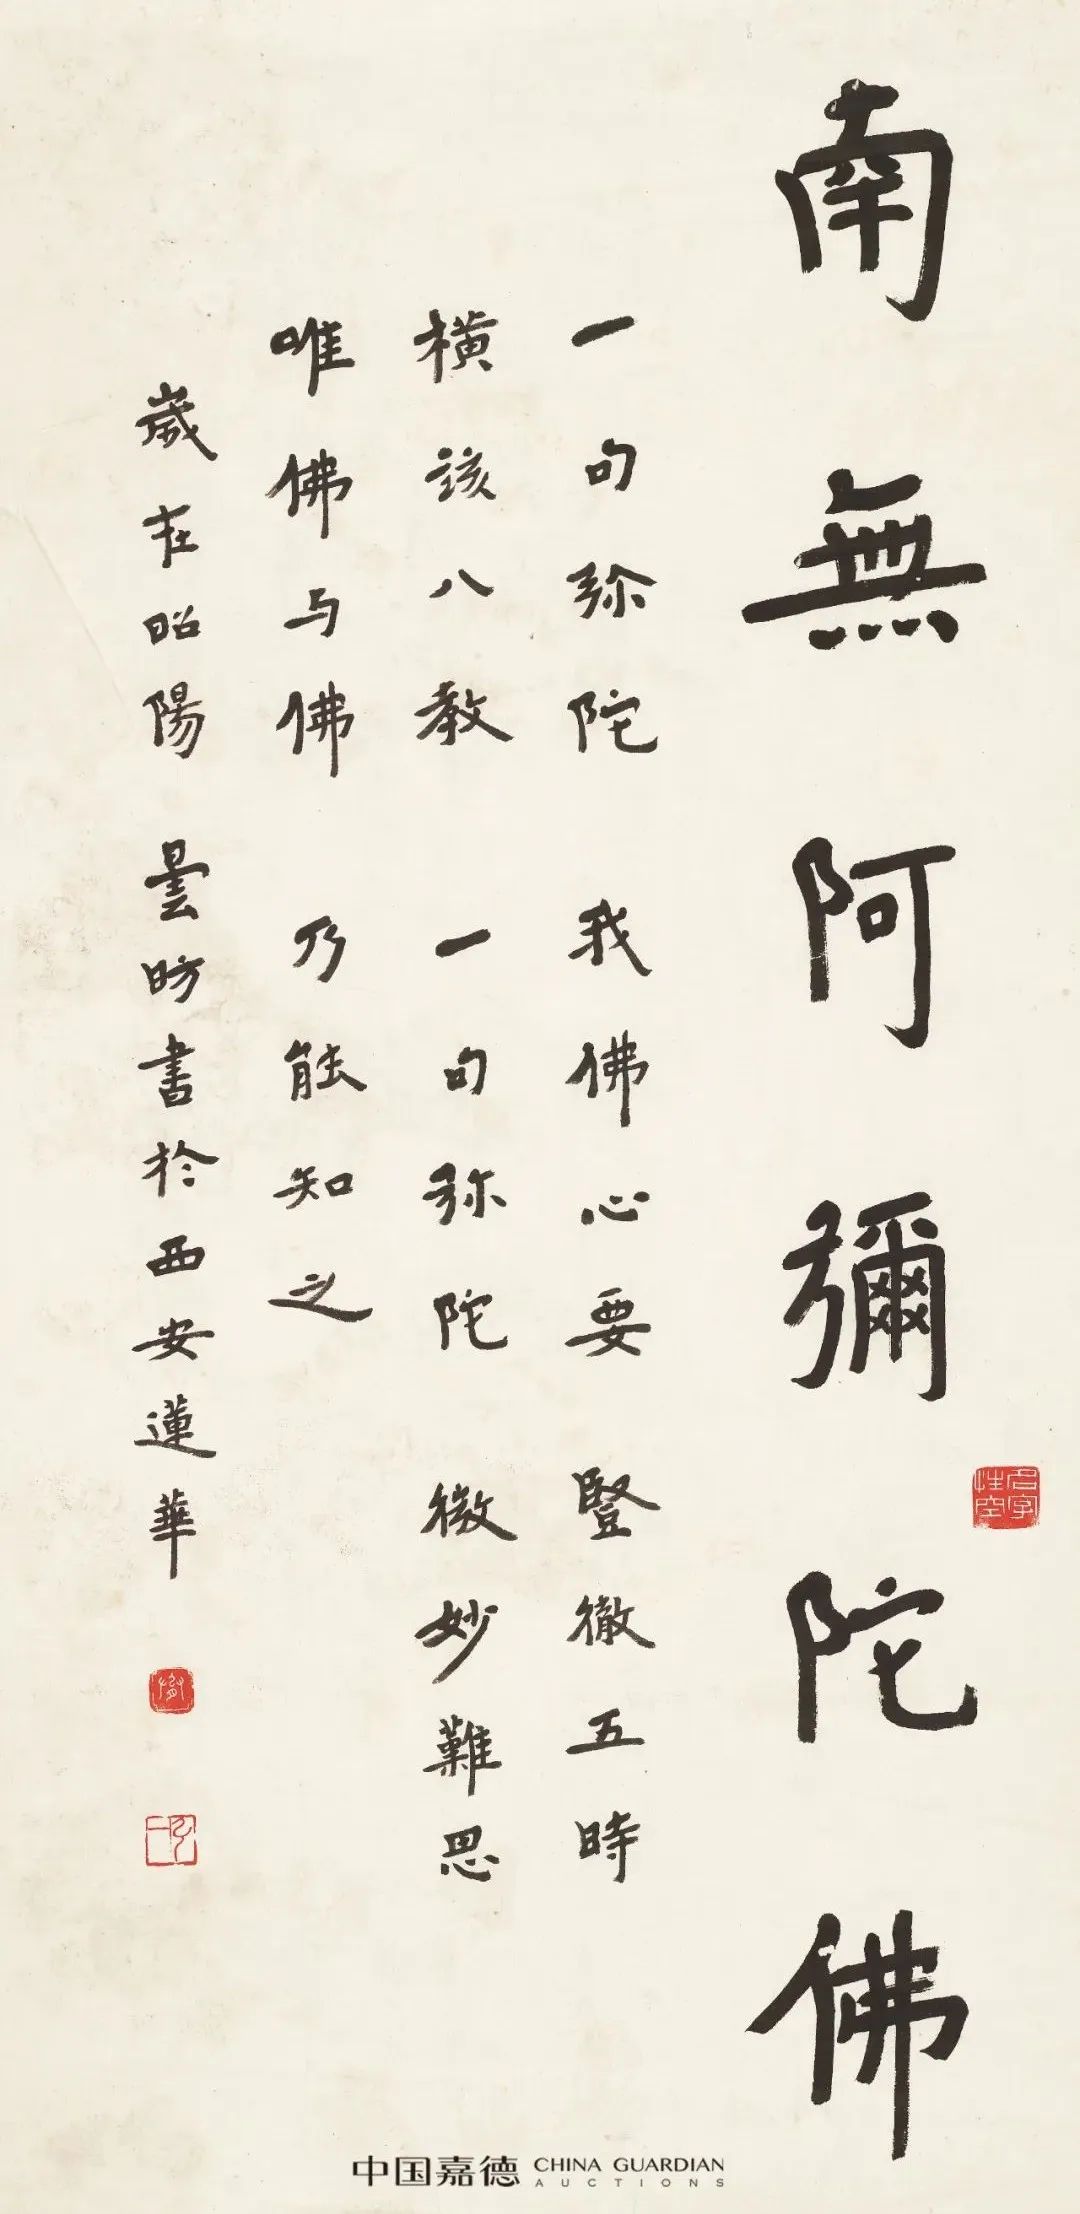 南無阿彌陀佛
一句弥陀 我佛心要 豎徹五時
橫該八教 一句弥陀 微妙難思
唯佛与佛 乃能知之
歲在昭陽 曇昉書於西安蓮華
名字性空
中国嘉德 CHINA GUARDIAN
AUCTIONS